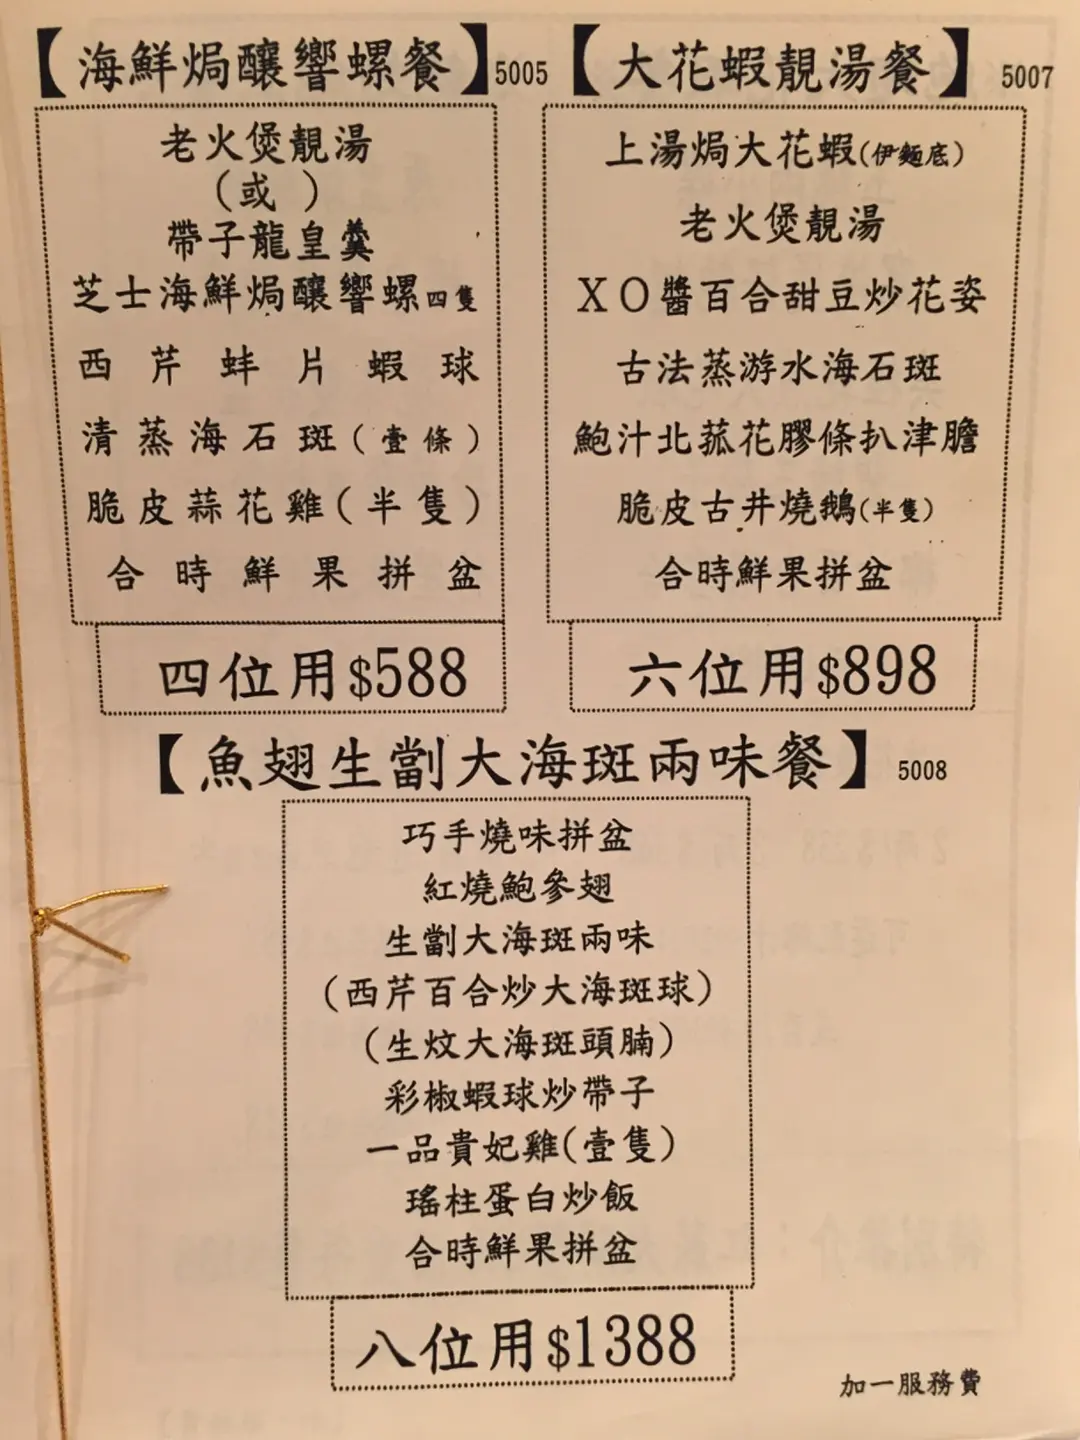 【海鮮焗釀響螺餐】5005
老火煲靚湯
(或 )
帶子龍皇羹
芝士海鮮焗釀響螺四隻
西芹蚌片蝦球
清蒸海石斑(壹條)
脆皮蒜花雞(半隻)
合時鮮果拼盆
四位用$588
【大花蝦靚湯餐】 5007
上湯焗大花蝦(伊麵底)
老火煲靚湯
XO醬百合甜豆炒花姿
古法蒸游水海石斑
鮑汁北菰花膠條扒津膽
脆皮古井燒鵝(半隻)
合時鮮果拼盆
六位用$898
【魚翅生劏大海斑兩味餐】 5008
巧手燒味拼盆
紅燒鮑參翅
生劏大海斑兩味
(西芹百合炒大海斑球)
(生炆大海斑頭腩)
彩椒蝦球炒帶子
一品貴妃雞(壹隻)
瑤柱蛋白炒飯
合時鮮果拼盆
八位用$1388
加一服務費